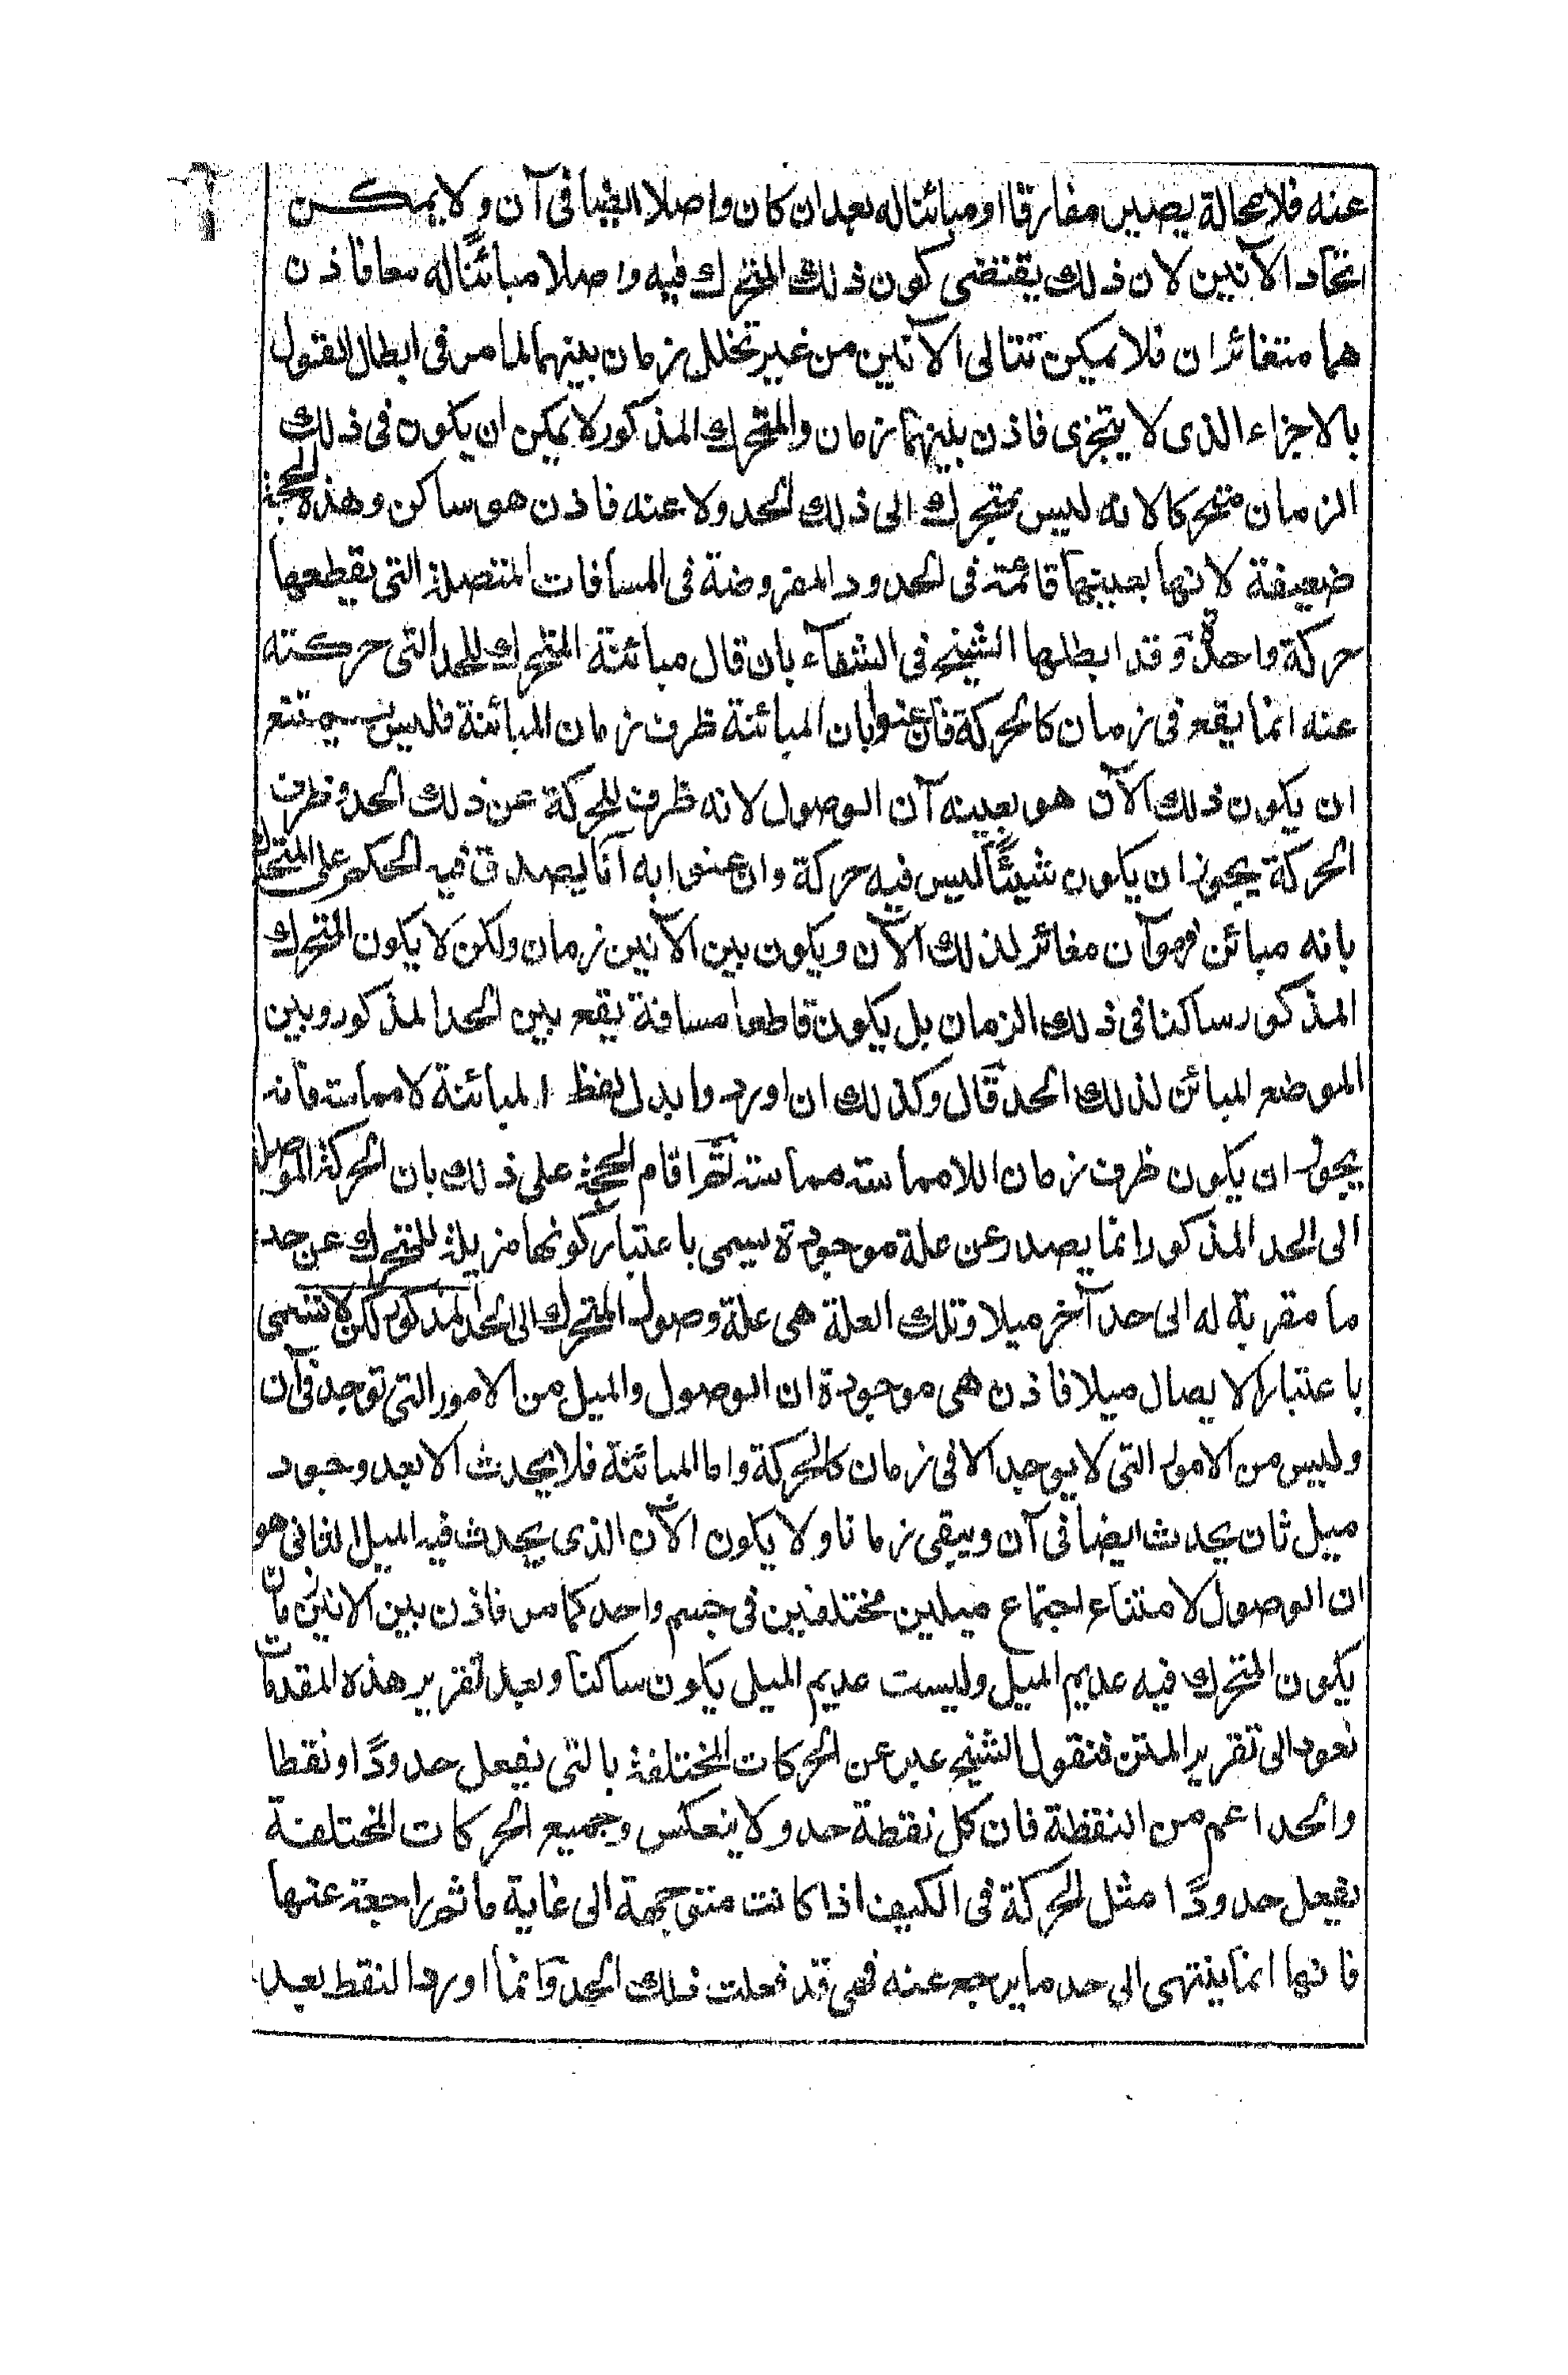 عنه فلا محالة يصير مفارقا او مبائنا له بعد ان كان واصلا ايضا فى آن ولا يمكن
اتحاد الآنين لان ذلك يقتضى كون ذلك المتحرك فيه واصلا مبائنًا له معا فاذن
هما متغائران فلا يمكن تتالى الآنين من غير تخلل زمان بينهما لما مر فى ابطال القول
بالاجزاء الذى لا يتجزى فاذن بينهما زمان والمتحرك المذكور لا يمكن ان يكون فى ذلك
الزمان متحركا لانه ليس بمتحرك الى ذلك الحد ولا عنه فاذن هو ساكن وهذه الحجة
ضعيفة لانها بعينها قائمة فى الحدود المفروضة فى المسافات المتصلة التى يقطعها
حركة واحدة وقد ابطلها الشيخ فى الشفآء بان قال مبائنة المتحرك للحد التى حركته
عنه انما يقع فى زمان كالحركة فان عنوا بان المبائنة ظرف زمان المبائنة فليس يمتنع
ان يكون ذلك الآن هو بعينه آن الوصول لانه ظرف للحركة عن ذلك الحد وظرف
الحركة يجوز ان يكون شيئًا ليس فيه حركة وان عنوا به آنا يصدق فيه الحكم على المتحرك
بانه مبائن فهو آن مغائر لذلك الآن ويكون بين الآنين زمان ولكن لا يكون المتحرك
المذكور ساكنا فى ذلك الزمان بل يكون قاطعا مسافة يقع بين الحد المذكور وبين
الموضع المبائن لذلك الحد قال وكذلك ان اورد وا بدل لفظ المبائنة لا مماسة فانه
يجوز ان يكون ظرف زمان اللامماسته مماسته ثم اقام الحجة على ذلك بان الحركة الموصل
الى الحد المذكور انما يصدر عن علة موجودة يسمى باعتبار كونها مزيلة للمتحرك عن حد
ما مقربة له الى حد آخر ميلا وتلك العلة هى علة وصول المتحرك الى الحد المذكور لكن لا تسمى
باعتبار الايصال ميلا فاذن هى موجودة ان الوصول والميل من الامور التى توجد فى آن
وليس من الامور التى لا يوجد الا فى زمان كالحركة واما المبائنة فلا يحدث الا بعد وجود
ميل ثان يحدث ايضا فى آن ويبقى زمانا ولا يكون الآن الذى يحدث فيه الميل الثانى هو
ان الوصول لامتناع اجتماع ميلين مختلفين فى جسم واحد كما مر فاذن بين الانين زمان
يكون المتحرك فيه عديم الميل وليست عديم الميل يكون ساكنا وبعد تقرير هذه المقدمات
نعود الى تقرير المتن فنقول الشيخ عبر عن الحركات المختلفة بالتى يفعل حدودًا ونقطا
والحد اعم من النقطة فان كل نقطة حد ولا ينعكس وجميع الحركات المختلفة
يفعل حدودًا مثل الحركة فى الكيف اذا كانت متوجهة الى غاية ما ثم راجعة عنها
فانها انما ينتهى الى حد ما يرجع عنه فهى قد فعلت ذلك الحد وانما اورد النقط بعد